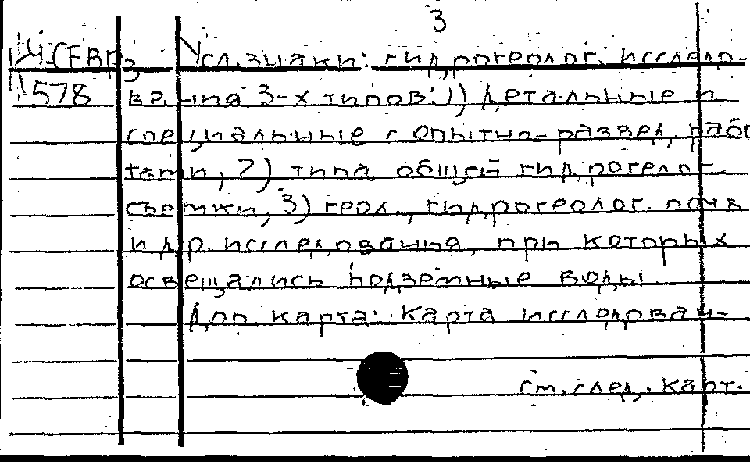 3
Усл. знаки: гидрогеолог. исследо-
578 вания 3-х типов: 1) детальные и
специальные с опытно-развед. рабо
тами, 2) типа общей гидрогеолог.
съемки, 3) геол., гидрогеолог. почв
и др. исследования, при которых
освещались подземные воды.
Доп. карта: Карта исследован-
См. след. карт.